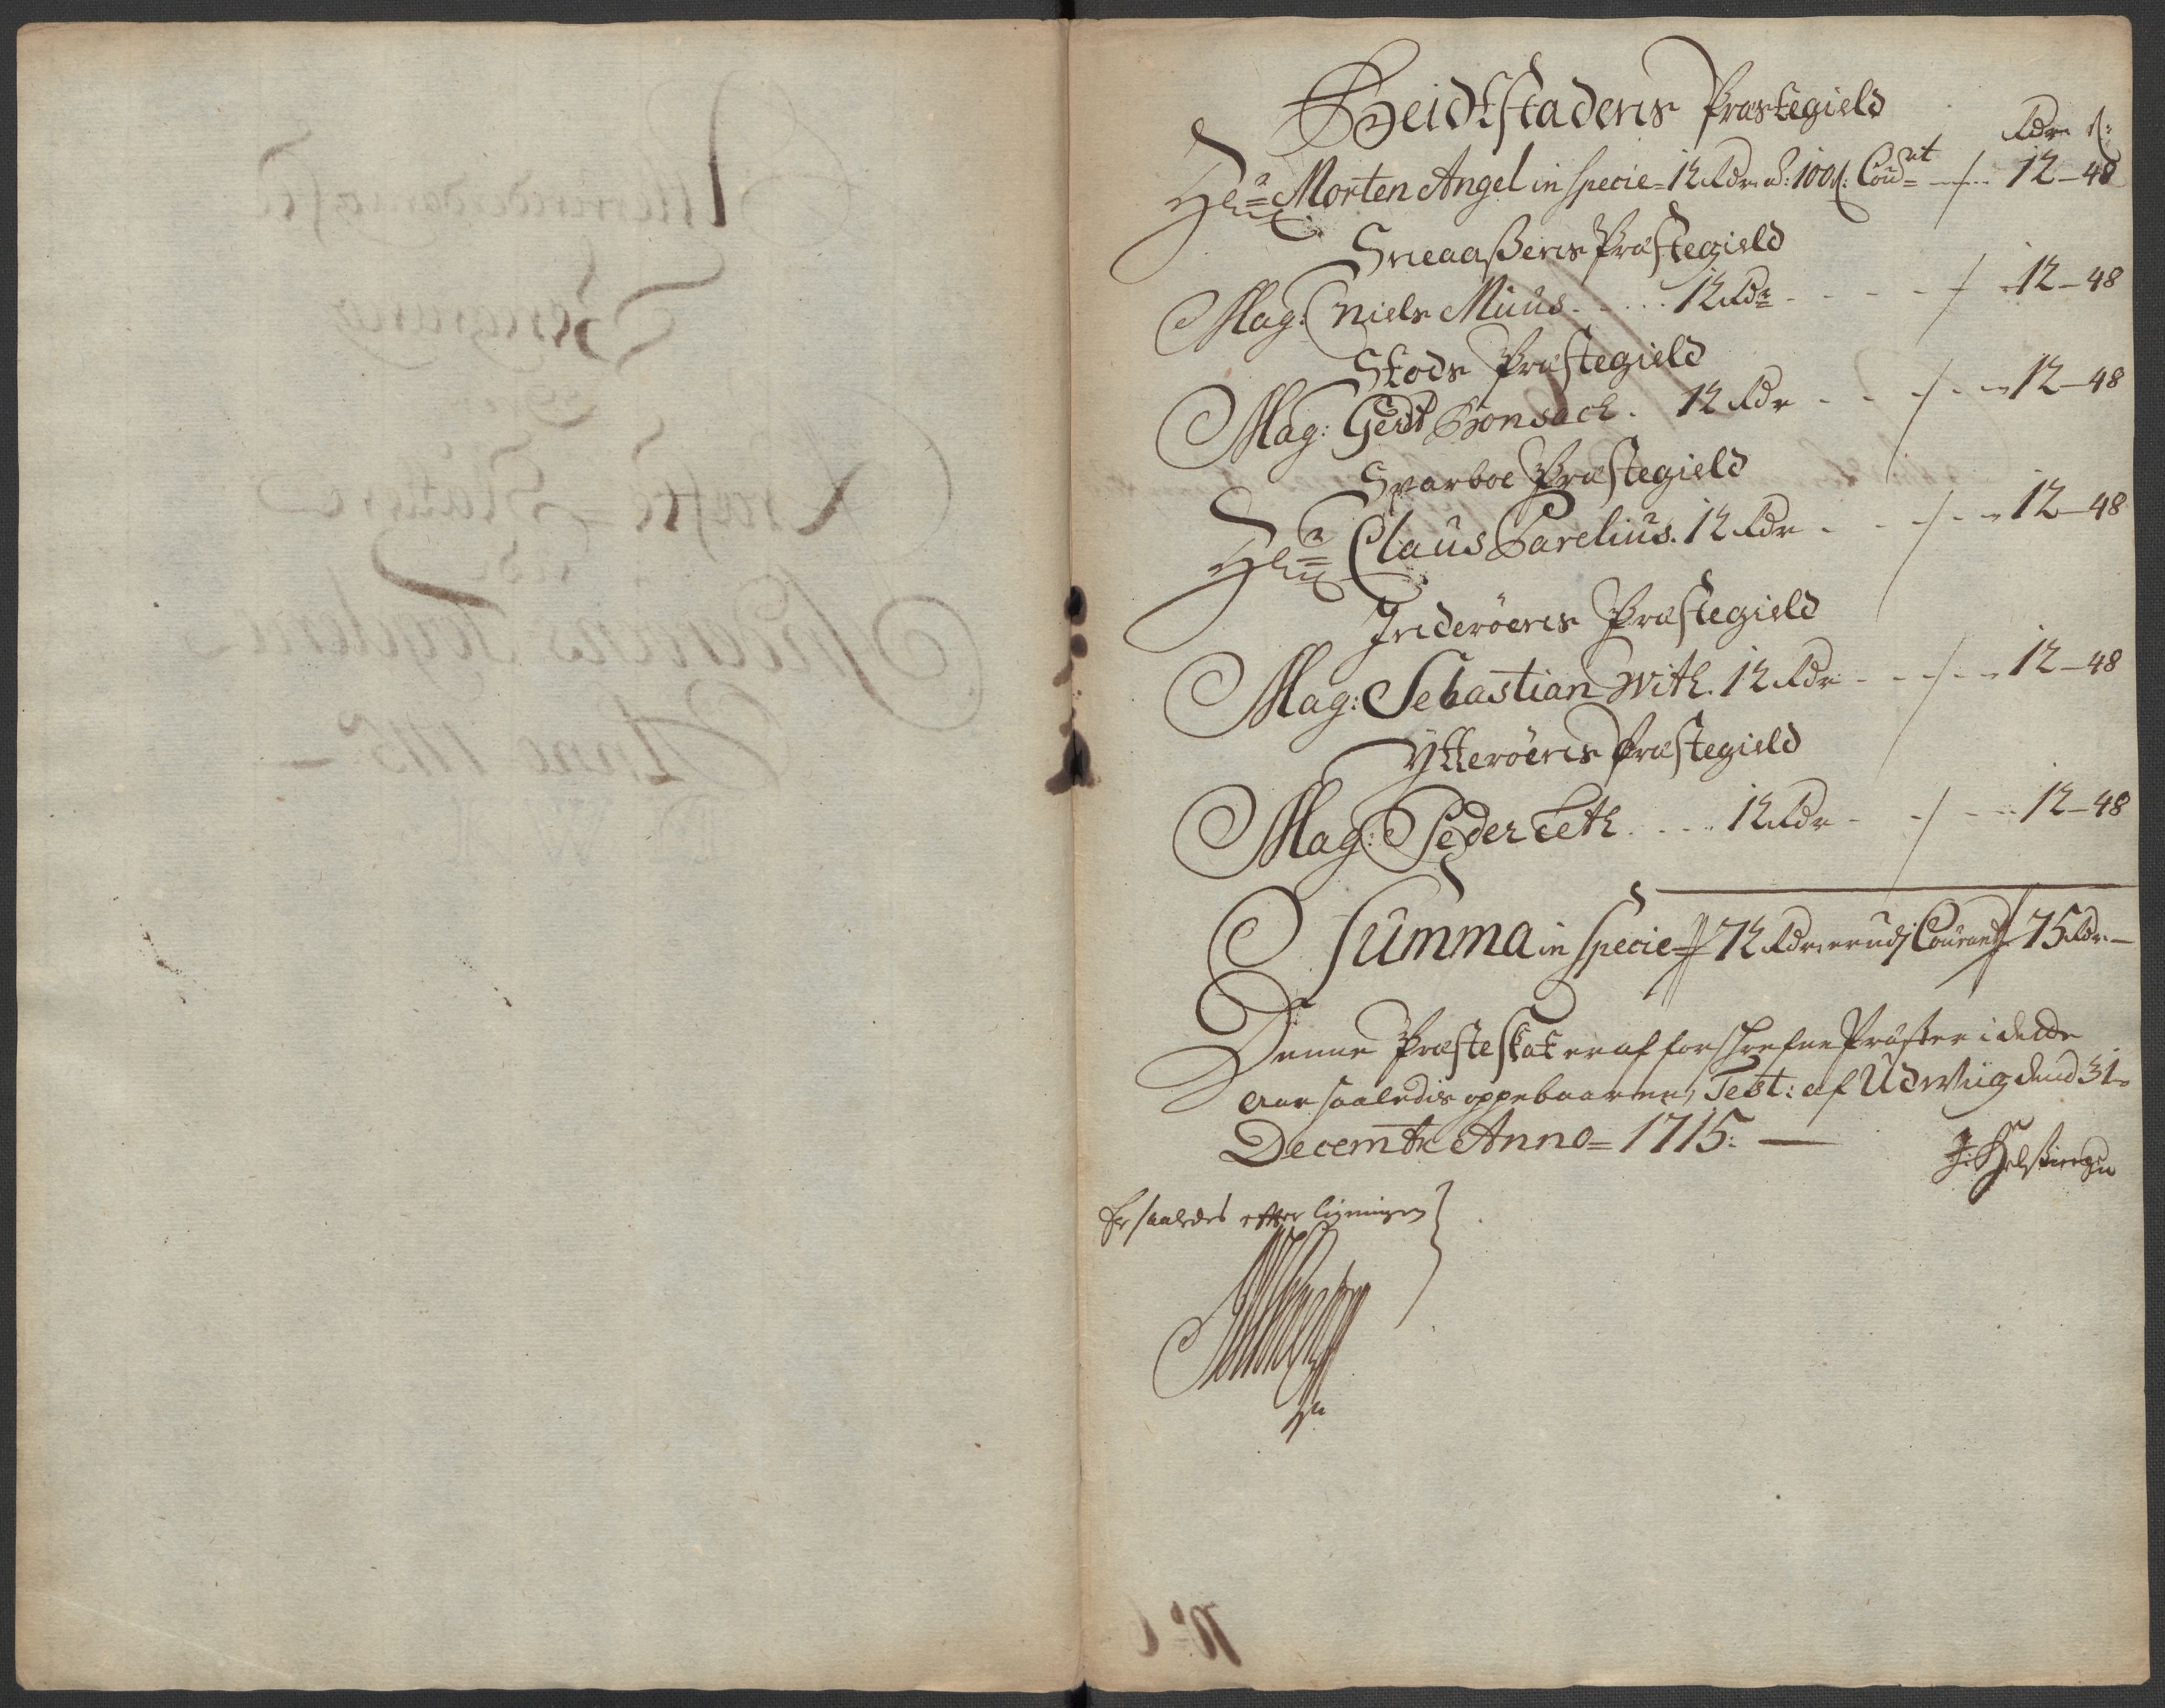 Beidtstadens Præstegield
Rdr ß:
Hr: Morten Angel in specie = 12 Rdr à: 100 ß: Cour=nt 12 – 48
Sneaaßens Præstegield
Mag: Niels Muus 12 Rdr 12 – 48
Stods Præstegield
Mag: Gert Bonsack. 12 Rdr 12 – 48
Sparboe Præstegield
Hr: Claus Parelius. 12 Rdr 12 – 48
Inderöens Præstegield
Mag: Sebastian With. 12 Rdr 12 – 48
Ytteröens Præstegield
Mag: Peder Leth 12 Rdr 12 – 48
Summa in Specie 72 Rdr er udj Courant 75 Rdr –
Denne Præste Skat er af forschrefne Præster i dette
Aar saaledis oppebaaren, Test: af Udwiig dend 31.
Decembr Anno = 1715. —
Er saaledes efter ligningen